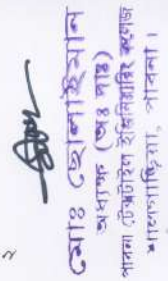 মোঃ সোলাইমান
অধ্যক্ষ (অঃ দাঃ)
পাবনা টেক্সটাইল ইঞ্জিনিয়ারিং কলেজ
শালগাড়িয়া, পাবনা।